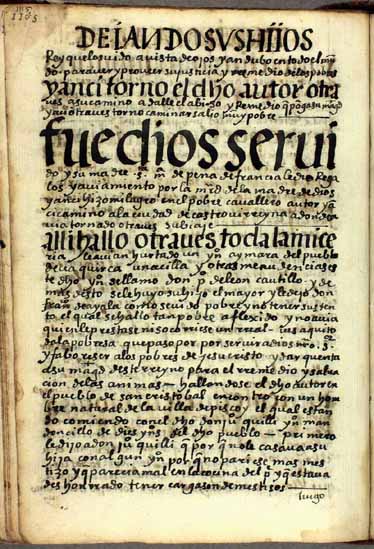 1105
DEJANDOSVSHIJOS
Rey que los vido a vista de ojos y andubo en todo el mun
do para ver y proveer su justicia y rremedio de los pobres
y anci torno el dho autor otra
ues a su camino a dalle el abiso y rremedio
y aci otraues torno caminar salio muy pobre
fue dios serui
do y su madre s. m de pena de francia le dio rrega
los y auiamiento por la m de la madre de dios
y anci hizo milagro en el pobre cauallero autor y a
ci camino a la ciudad de castrouirreyna adonde a
uia tornado otraues su biaje
alli hallo otra ues toda la mice
ria y le auian hurtado un yn aymara del pueblo
de una cilla y otras menudencias es
te dho yn se llamo don p de leon cautillo y de
mas desto se le huyo su hijo el mayor y le dejo don
fran de ayala como se uido pobre y no tener susten
ta el qual se hallo tan pobre aflexido y no auia
quien le prestase ni socorriese un rreal
de la pobresa que paso por por seruir a dios nro s.
y faboreser a los pobres de jesucristo y dar quenta
a su mag deste rreyno para el rremedio y salua
cion de las animas hallandose el dho autor en
el pueblo de san cristobal encontro con un hom
bre natural de la uilla de pisco y el qual estan
do comiendo con el dho don ju quilli yn man
doncillo de dies yns del dho pueblo primero
le dijo a don ju quilli q por q no la casaua a su
hija con algun yn por q no pariese mas mes
tizo y q parecia mal en la cocina del p y q estaua
deshonrrado tener cargason de mestisos
luego